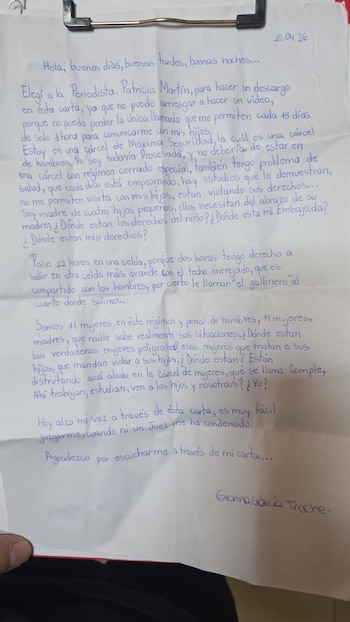 20.04.26
Hola, buenos días, buenas tardes, buenas noches...
Elegí a la Periodista. Patricia Martín, para hacer un descargo
en ésta carta, ya que no puedo arriesgar a hacer un video,
porque no puedo perder la única llamada que me permiten cada 15 días
de solo 1 hora para comunicarme con mis hijos,
Estoy en una cárcel de Máxima Seguridad, la cuál es una cárcel
de hombres, Yo soy todavía Procesada, y no debería de estar en
una cárcel con régimen cerrado especial, también tengo problema de
salud, que cada día está empeorando, hay estudios que lo demuestran,
no me permiten visita con mis hijos, están violando sus derechos...
Soy madre de cuatro hijos pequeños, ellos necesitan del abrazo de su
madre, ¿Dónde están los derechos del niño? ¿Dónde esta mi Embajada?
¿Dónde estan mis derechos?
Paso 22 horas en una celda, porque dos horas tengo derecho a
salir en otra celda más grande con el techo enrejado, que es
compartido con los hombres, por cierto le llaman "el gallinero" al
cuarto donde salimos.
Somos 11 mujeres en éste régimen y penal de hombres, 11 mujeres,
madres, que nadie sabe realmente sus situaciones, ¿Dónde están
las verdaderas mujeres peligrosas? esas mujeres que matan a sus
hijos, que mandan violar a sus hijos, ¿Dónde estan? Están
disfrutando acá alado en la Cárcel de mujeres, que se llama Comple,
Ahí trabajan, estudian, ven a los hijos y nosotras? ¿Yo?
Hoy alzo mi voz a través de ésta carta, es muy fácil
juzgarme, cuando ni un Juez me ha condenado.
Agradezco por escucharme a través de mi carta...
Gianina García Troche.